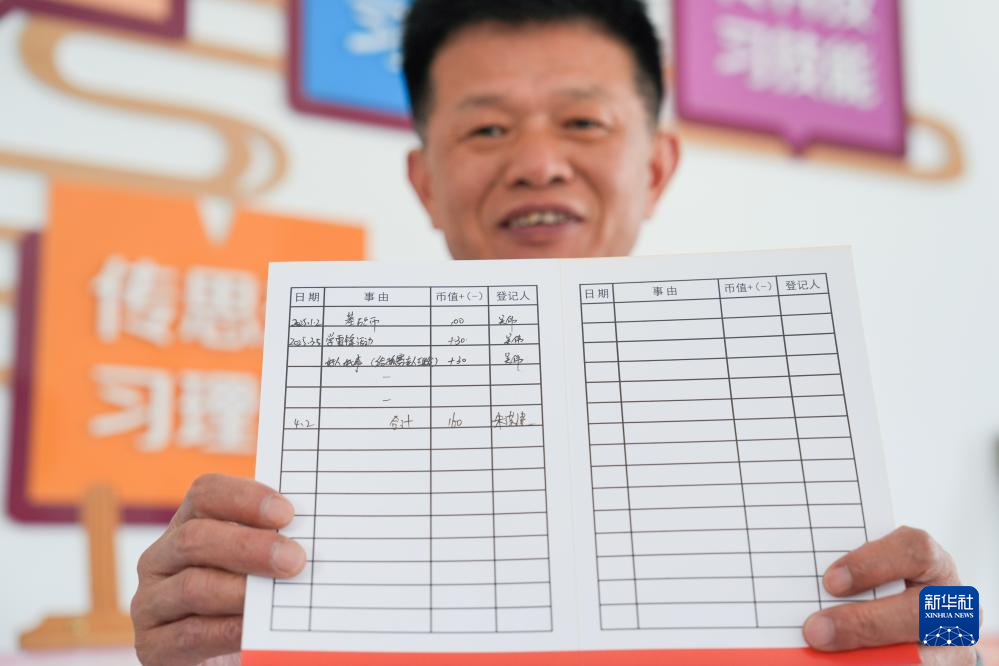 习技能
传思
习理
日期 事由 币值+(-) 登记人
2025.1.2 基础币 100
2025.3.5 学雷锋活动 +30
好人好事 +30
4.2 合计 160
日期 事由 币值+(-) 登记人
新华社
XINHUA NEWS